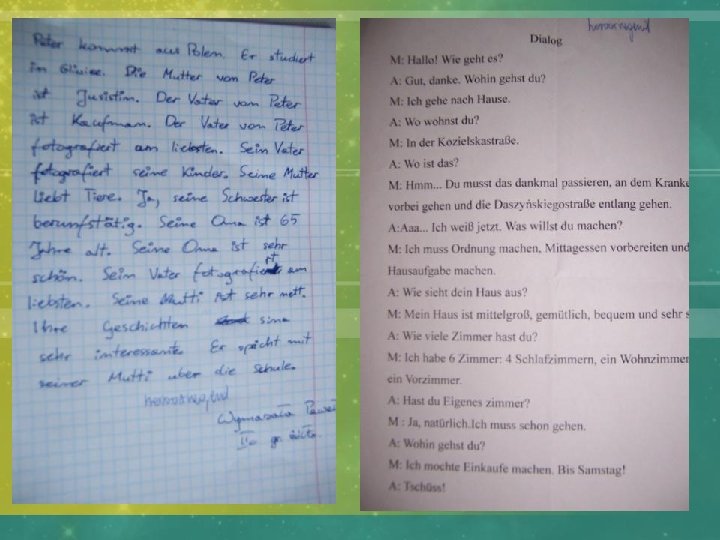 Peter kommt aus Polen. Er studiert
in Gliwice. Die Mutter von Peter
ist Juristin. Der Vater vom Peter
ist Kaufmam. Der Vater von Peter
fotografiert am liebsten. Sein Vater
fotografiert seine Kinder. Seine Mutter
liebt Tiere. Ja, seine Schwester ist
berunfstätig. Seine Oma ist 65
Jahre alt. Seine Oma ist sehr
schön. Sein Vater fotografiert am
liebsten. Seine Mutti ist sehr nett.
Ihre Geschichten sina
sehr interessante. Er spicht mit
seiner Mutti uber die Schule.
hervorragend
Dialog
M: Hallo! Wie geht es?
A: Gut, danke. Wohin gehst du?
M: Ich gehe nach Hause.
A: Wo wohnst du?
M: In der Kozielskastraße.
A: Wo ist das?
M: Hmm... Du musst das dankmal passieren, an dem Kranke
vorbei gehen und die Daszyńskiegostraße entlang gehen.
A:Aaa... Ich weiß jetzt. Was willst du machen?
M: Ich muss Ordnung machen, Mittagessen vorbereiten und
Hausaufgabe machen.
A: Wie sieht dein Haus aus?
M: Mein Haus ist mittelgroß, gemütlich, bequem und sehr s
A: Wie viele Zimmer hast du?
M: Ich habe 6 Zimmer: 4 Schlafzimmern, ein Wohnzimmer
ein Vorzimmer.
A: Hast du Eigenes zimmer?
M : Ja, natürlich.Ich muss schon gehen.
A: Wohin gehst du?
M: Ich mochte Einkaufe machen. Bis Samstag!
A: Tschüss!